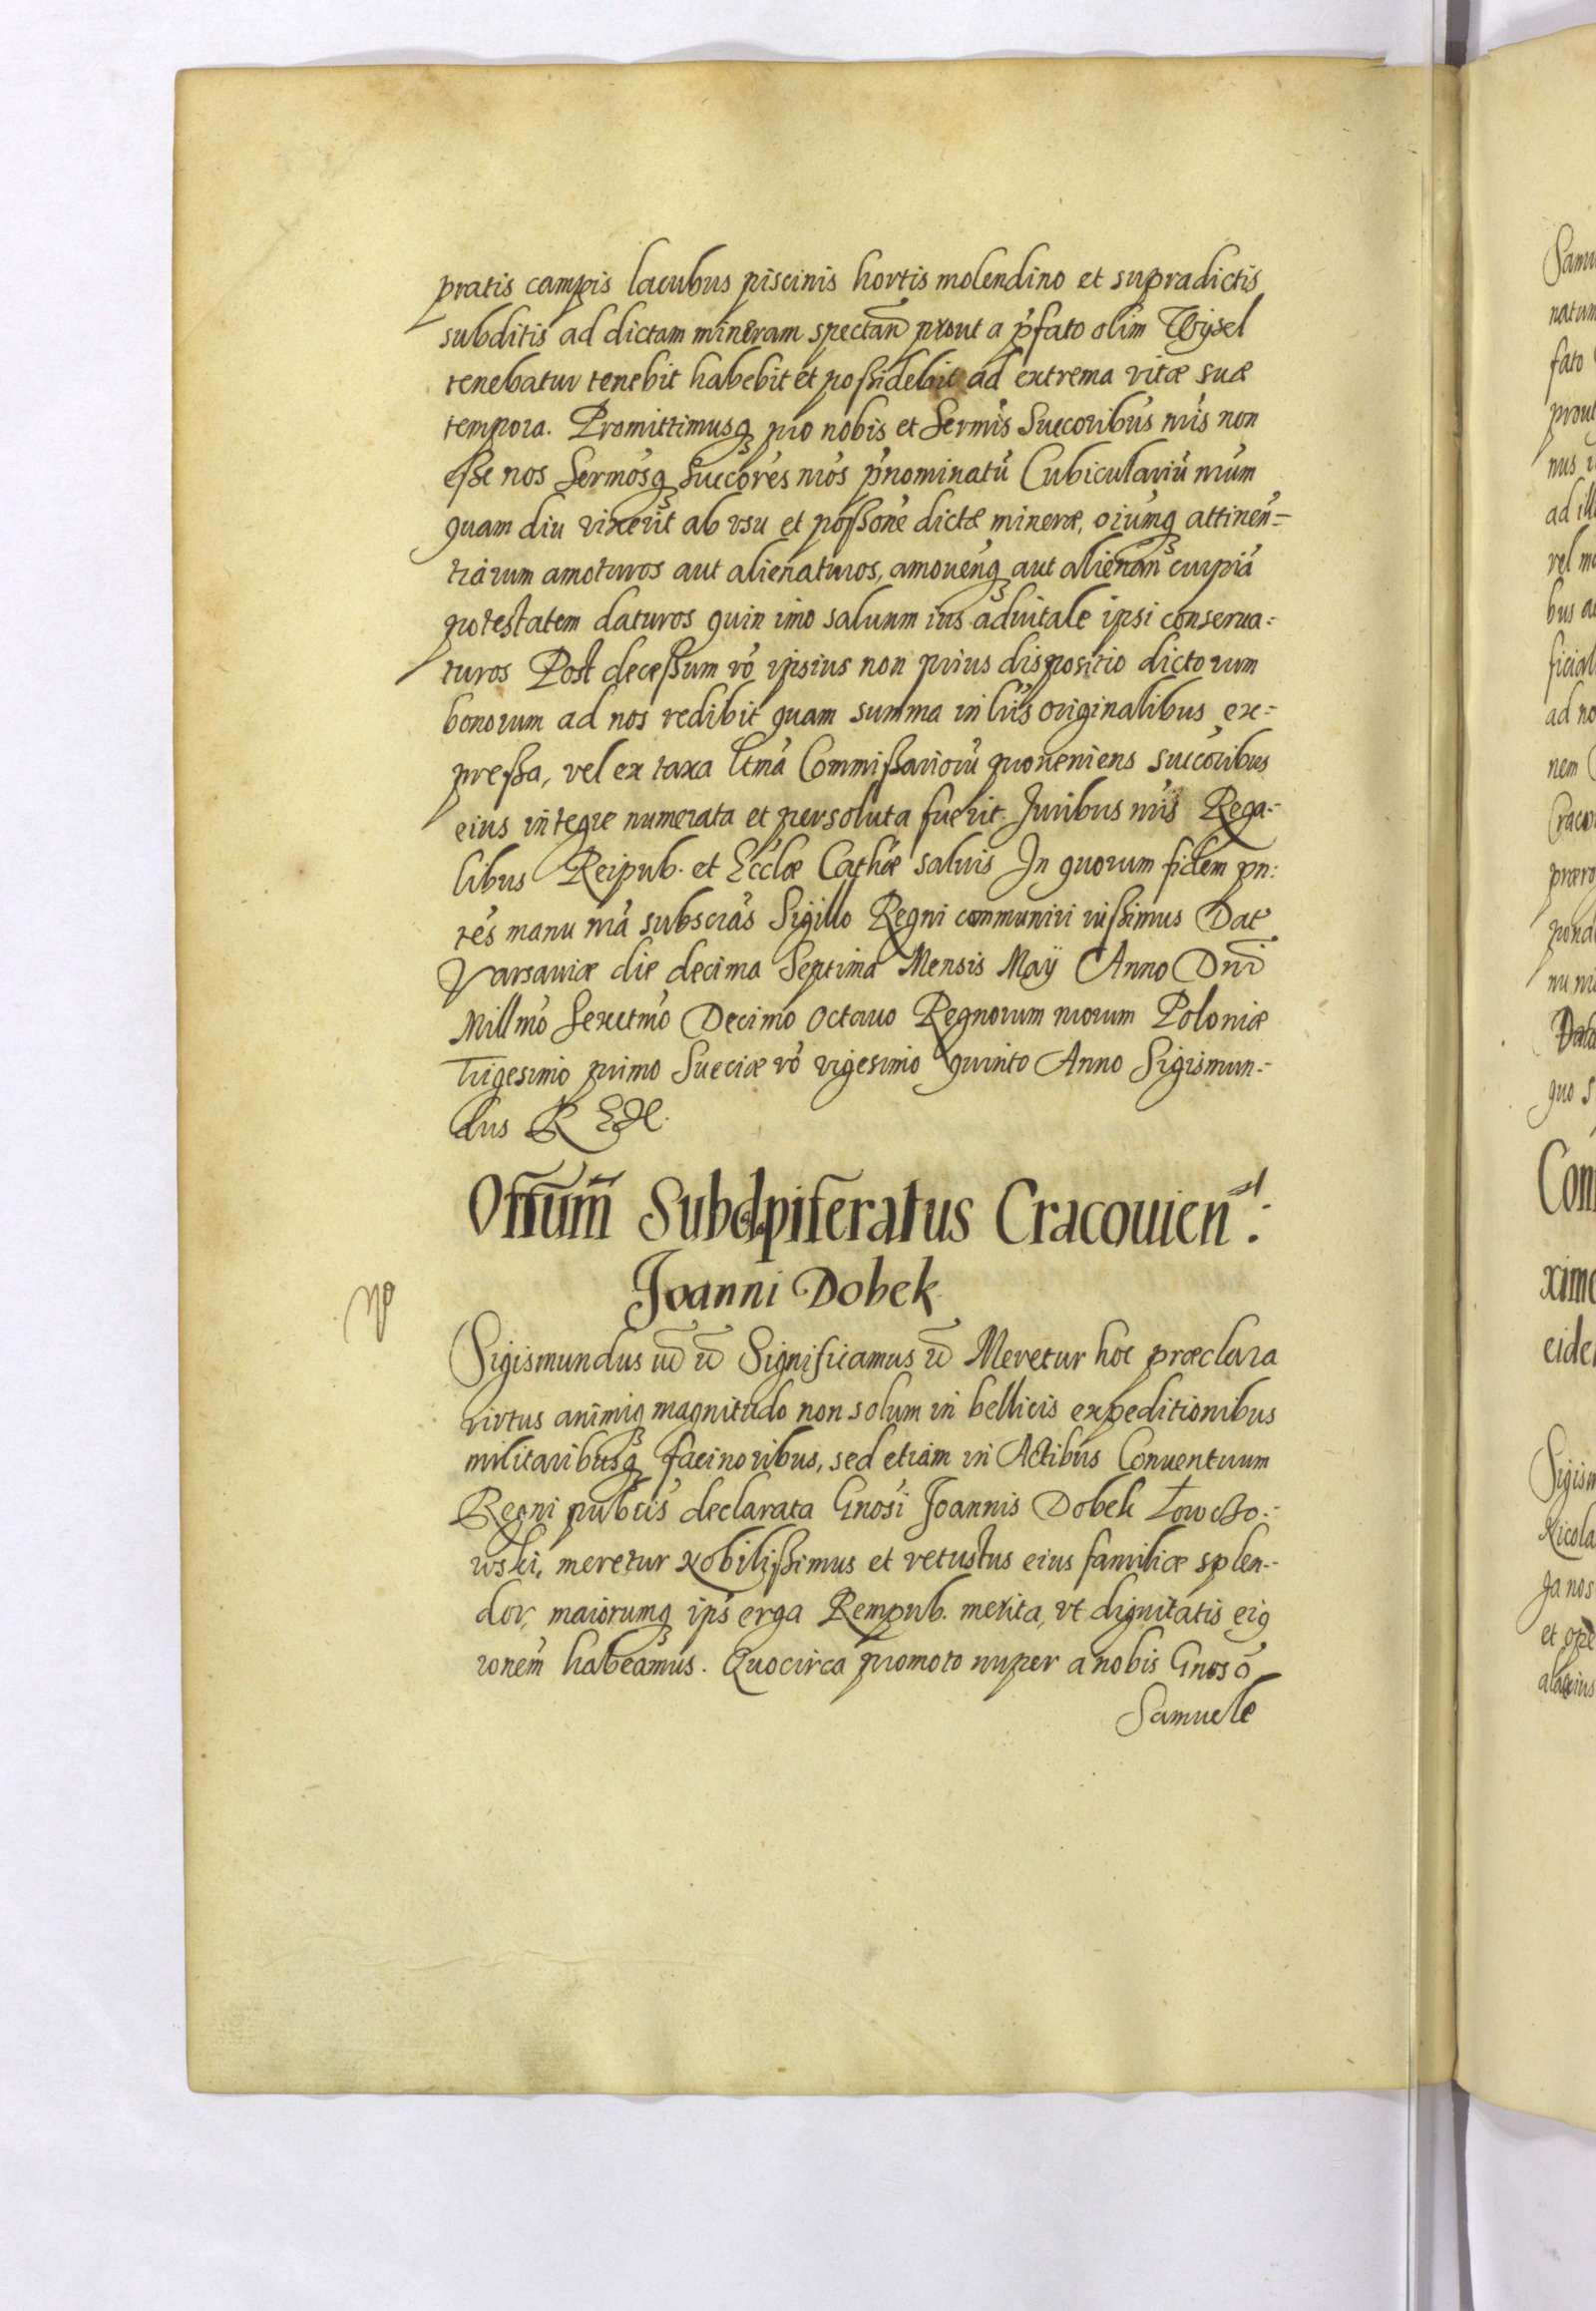 pratis campis lacubus piscinis hortis molendino et supradictis
subditis ad dictam mineram spectan̄ prout a p̄fato olim Wysel
tenebatur tenebit habebit et possidebit ad extrema vitæ suæ
tempora. Promittimusq pro nobis et Sermis Succoribus nris non
esse nos Sermosq Succores nros p̄nominatū Cubiculariū nrum
quam diu vixerit ab vsu et possone dictæ mineræ, oiumq attinen=
tiarum amoturos aut alienaturos, amouenq aut alienan cuipiā
potestatem daturos quin imo saluum ius aduitale ipsi conserua=
turos Post decessum vo ipsius non prius dispositio dictorum
bonorum ad nos redibit quam summa in lris originalibus ex=
pressa, vel ex taxa ltma Commissariorū proueniens succoribus
eius integre numerata et persoluta fuerit. Juribus nris Rega=
libus Reipub. et Eccloe Cathoe saluis In quorum fidem pn:
tes manu nra subscras Sigillo Regni communiri iussimus Dat
Varsauiæ die decima Septima Mensis Maÿ Anno Dni
Millmo Sexctmo Decimo octauo Regnorum nrorum Poloniæ
Trigesimo primo Sueciæ vo vigesimo quinto Anno Sigismun=
dus REX.
Offium Subdpiferatus Cracouien:
Joanni Dobek
Sigismundus
Significamus
Meretur hoc præclara
virtus animiq magnitudo non solum in bellicis expeditionibus
militaribusq facinoribus, sed etiam in Actibus Conuentuum
Regni publcis declarata Gnosi Joannis Dobek Łowczo=
wski, meretur Nobilissimus et vetustus eius familiæ splen=
dor, maiorumq ips erga Rempub. merita, vt dignitatis eiq
ronem habeamus. Quocirca promoto nuper a nobis Gnoso
Samuele